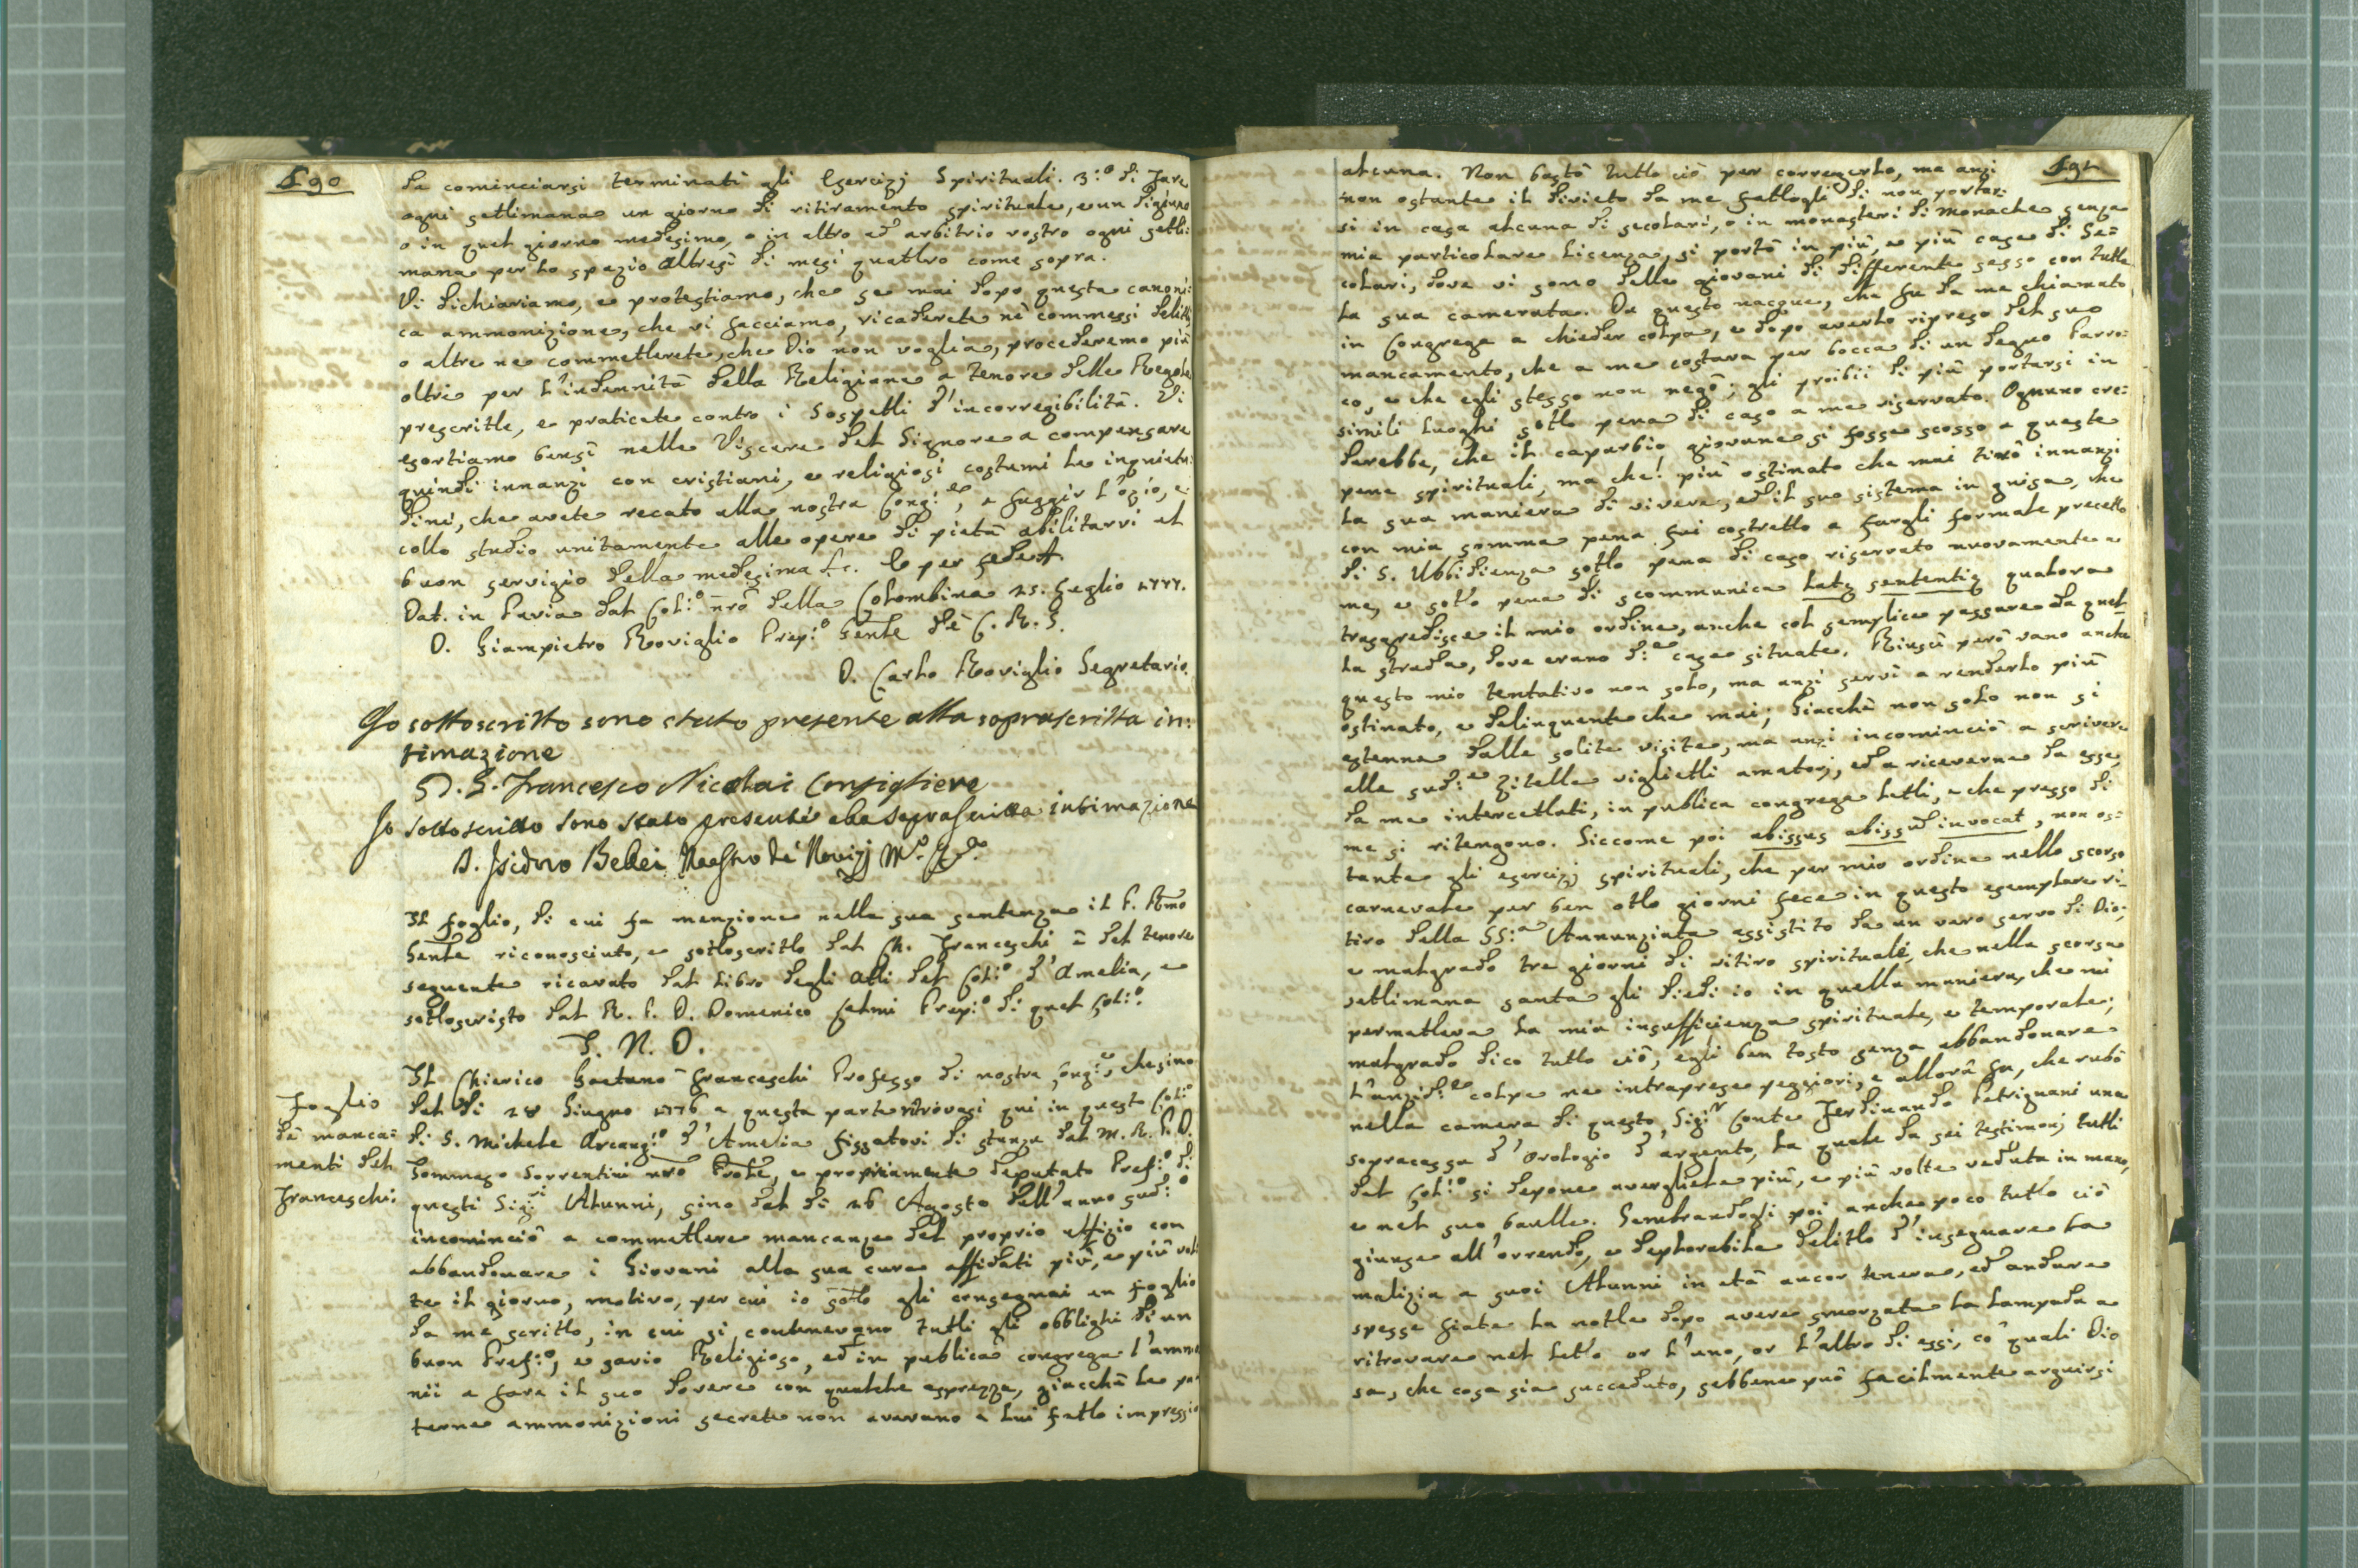 190
da cominciarsi terminati gli Esercizj Spirituali. 3:º di fare
ogni settimana un giorno di ritiramento spirituale, e un digiuno
o in quel giorno medesimo, o in altro ad arbitrio vostro ogni setti:
mana per lo spazio altresì di mesi quattro come sopra.
Vi dichiariamo, e protestiamo, che se mai dopo questa canoni:
ca ammonizione, che vi facciamo, ricaderete nè commessi delitti,
o altre ne commetterete, che Dio non voglia, procederemo più
oltre per l'indennità della Religione a tenore delle Regole
prescritte, e praticate contro i sospetti d'incorregibilità. Vi
esortiamo bensì nelle Viscere del Signore a compensare
quindi innanzi con cristiani, e religiosi costumi le inquietu:
dini, che avete recato alla nostra Cong:ne, a fuggir l'ozio, e
collo studio unitamente alle opere di pietà abilitarvi al
buon servigio della medesima &c. E per fede
Dat. in Pavia dal Col:º nrõ della Colombina 25. Luglio 1777.
D. Giampietro Roviglio Prep:º Genle dè C. R. S.
D. Carlo Roviglio Segretario.
Io sottoscritto sono stato presente alla soprascritta in:
timazione
D. G. Francesco Nicolai Consigliere
Io sottoscritto sono stato presente alla soprascritta intimazione
D. Isidoro Bellei Maestro de' Novizj
Il foglio, di cui fa menzione nella sua sentenza il P. Rmo
Genle riconosciuto, e sottoscritto dal Ch. Franceschi è del tenore
seguente ricavato dal Libro degli Atti del Col:º d'Amelia, e
sottoscristo dal R. P. D. Domenico Selmi Prep:º di quel Col:º
I. N. D.
Foglio
dè manca:
menti del
Franceschi:
Il Chierico Gaetano Franceschi Professo di nostra Cong:ne, che sino
dal dì 28 Giugno 1776 a questa parte ritrovasi qui in questo Col:º
di S. Michele Arcang:º d'Amelia fissatovi di stanza dal M. R. P. D.
Tommaso Sorrentini nrõ Prole, e propriamente deputato Pref:º di
questi Sig:ri Alunni, sino dal dì 26 Agosto dell'anno sud:º
incominciò a commettere mancanze del proprio uffizio con
abbandonare i Giovani alla sua cura affidati più, e più vol
te il giorno, motivo, per cui io sotto gli consegnai un foglio
da me scritto, in cui si contenevano tutti gli obblighi di un
buon Pref:º, e savio Religioso, ed in publica congrega l'ammo
nii a fare il suo dovere con qualche asprezza, giacchè le pa
terne ammonizioni secrete non avevano a lui fatto impressio
191
alcuna. Non bastò tutto ciò per correggerlo, ma anzi
non ostante il divieto da me fattogli di non portar:
si in casa alcuna di secolari, o in monasteri di Monache senza
mia particolare licenza, si portò in più, e più case di Se=
colari, dove vi sono delle giovani di differente sesso con tutta
la sua camerata. Da questo nacque, che fu da me chiamato
in Congrega a chieder colpa, e dopo averlo ripreso del suo
mancamento, che a me costava per bocca di un degno Parro:
co, e che egli stesso non negò; gli proibii di più portarsi in
simili luoghi sotto pena di caso a me riservato. Ognuno cre:
derebbe, che il caparbio giovane si fosse scosso a queste
pene spirituali, ma che! più ostinato che mai tirò innanzi
la sua maniera di vivere, ed il suo sistema in guisa, che
con mia somma pena fui costretto a fargli formale precetto
di S. Ubbidienza sotto pena di caso riservato nuovamente a
me, e sotto pena di scommunica latę sententię qualora
trasgredisce il mio ordine, anche col semplice passare da quel
la strada, dove erano d:e case situate. Riuscì però vano anche
questo mio tentativo non solo, ma anzi servì a renderlo più
ostinato, e delinquente che mai; Giacchè non solo non si
astenne dalle solite visite, ma anzi incominciò a scrivere
alle sud:e Zitelle viglietti amatorj, ed a riceverne da esse,
da me intercettati, in publica congrega letti, e che presso di
me si ritengono. Siccome poi abissus abissum invocat, non os:
tante gli esercizj spirituali, che per mio ordine nello scorso
carnevale per ben otto giorni fece in questo esemplare ri:
tiro della SS:a Annunziata assistito da un vero servo di Dio;
e malgrado tre giorni di ritiro spirituale, che nella scorsa
settimana santa gli diedi io in quella maniera, che mi
permetteva la mia insufficienza spirituale, e temporale;
malgrado dico tutto ciò, egli ben tosto senza abbandonare
l'anzid:e colpe ne intraprese peggiori, e allora fu, che rubò
nella camera di questo Sig:r Conte Ferdinando Petrignani una
sopracassa d'Orologio d'argento, la quale da sei testimonj tutti
del Col:º si depone avergliela più, e più volte veduta in mano,
e nel suo baulle. Sembrandogli poi anche poco tutto ciò
giunse all'orrendo, e deplorabile delitto d'insegnare la
malizia a suoi Alunni in età ancor tenera, ed andare
spesse fiate la notte dopo avere smorzata la lampada a
ritrovare nel letto or l'uno, or l'altro di essi, co' quali Dio
sa, che cosa sia succeduto, sebbene può facilmente arguirsi